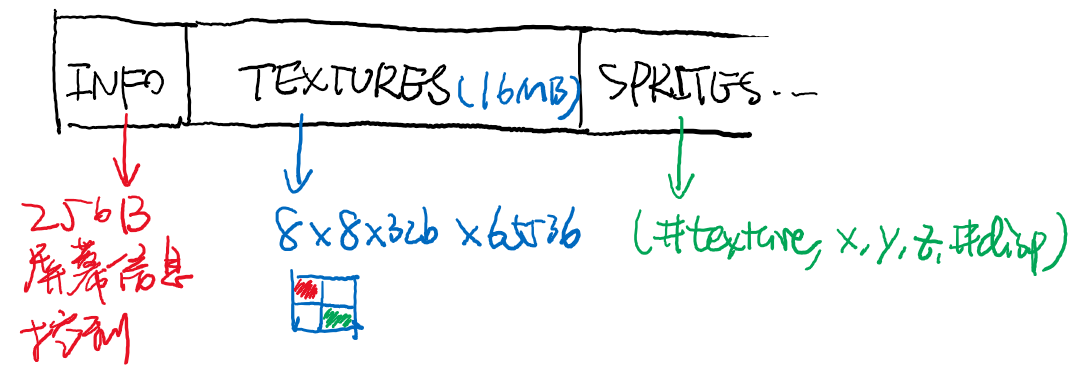 INFO TEXTURES (16MB) SPRITES...
256B
屏幕信息
控制
8x8x32b x65536
(#texture, x, y, z, #disp)